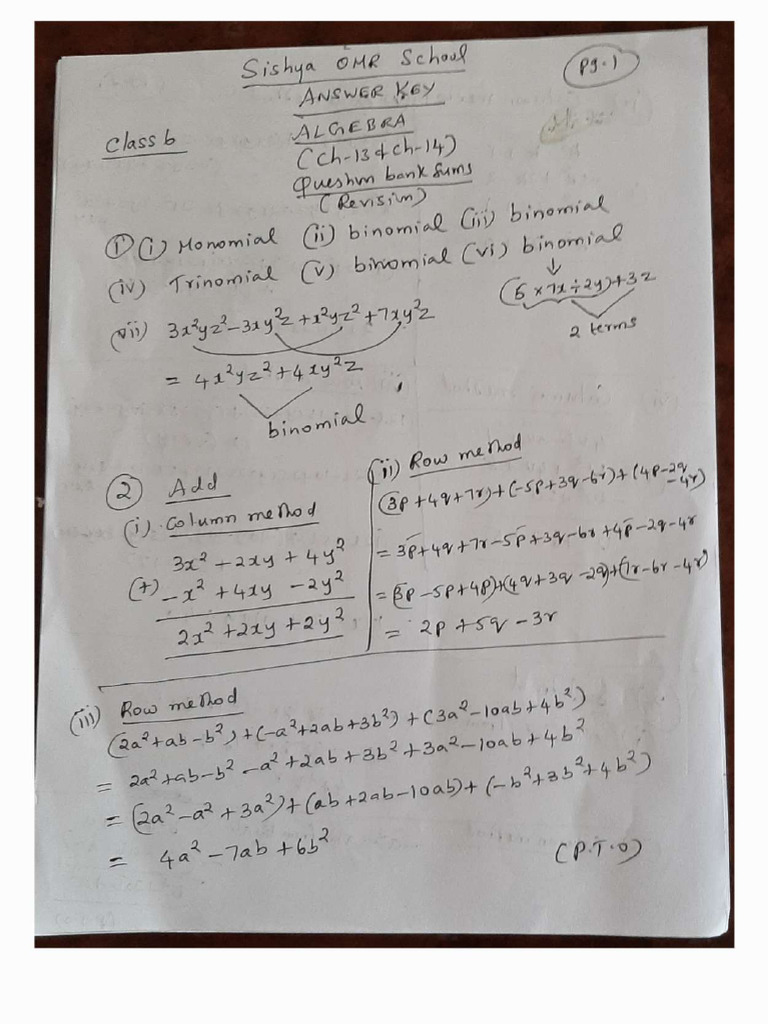 Sishya OMR School
Pg.1
ANSWER KEY
Class 6
ALGEBRA
(Ch-13 & Ch-14)
Question bank sums
(Revision)
① (i) Monomial (ii) binomial (iii) binomial
(iv) Trinomial (v) binomial (vi) binomial
↓
(5 × 7x ÷ 2y) + 3z
2 terms
(vii) 3x²yz² - 3xy²z + x²yz² + 7xy²z
= 4x²yz² + 4xy²z
binomial
② Add
(i) Column method
3x² + 2xy + 4y²
(+) -x² + 4xy - 2y²
2x² + 2xy + 2y²
(ii) Row method
(3p + 4q + 7r) + (-5p + 3q - 6r) + (4p - 2q - 4r)
= 3p + 4q + 7r - 5p + 3q - 6r + 4p - 2q - 4r
= (3p - 5p + 4p) + (4q + 3q - 2q) + (7r - 6r - 4r)
= 2p + 5q - 3r
(iii) Row method
(2a² + ab - b²) + (-a² + 2ab + 3b²) + (3a² - 10ab + 4b²)
= 2a² + ab - b² - a² + 2ab + 3b² + 3a² - 10ab + 4b²
= (2a² - a² + 3a²) + (ab + 2ab - 10ab) + (-b² + 3b² + 4b²)
= 4a² - 7ab + 6b²
(P.T.O)